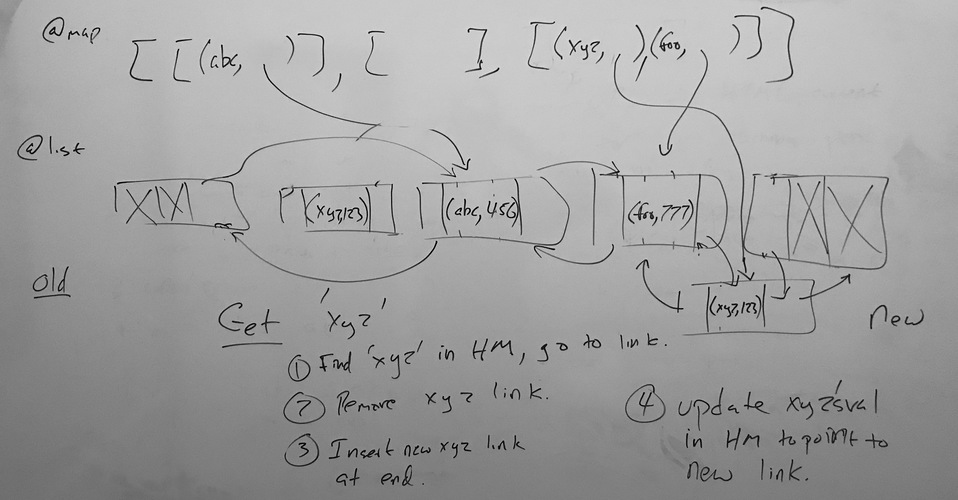 @map
[ [(abc, )], [ ], [(xyz, )(foo, )] ]
@list
(xyz,123)
(abc,456)
(foo,777)
(xyz,123)
old
new
Get 'xyz'
① Find 'xyz' in HM, go to link.
② Remove xyz link.
③ Insert new xyz link
at end.
④ update xyz'sval
in HM to point to
new link.